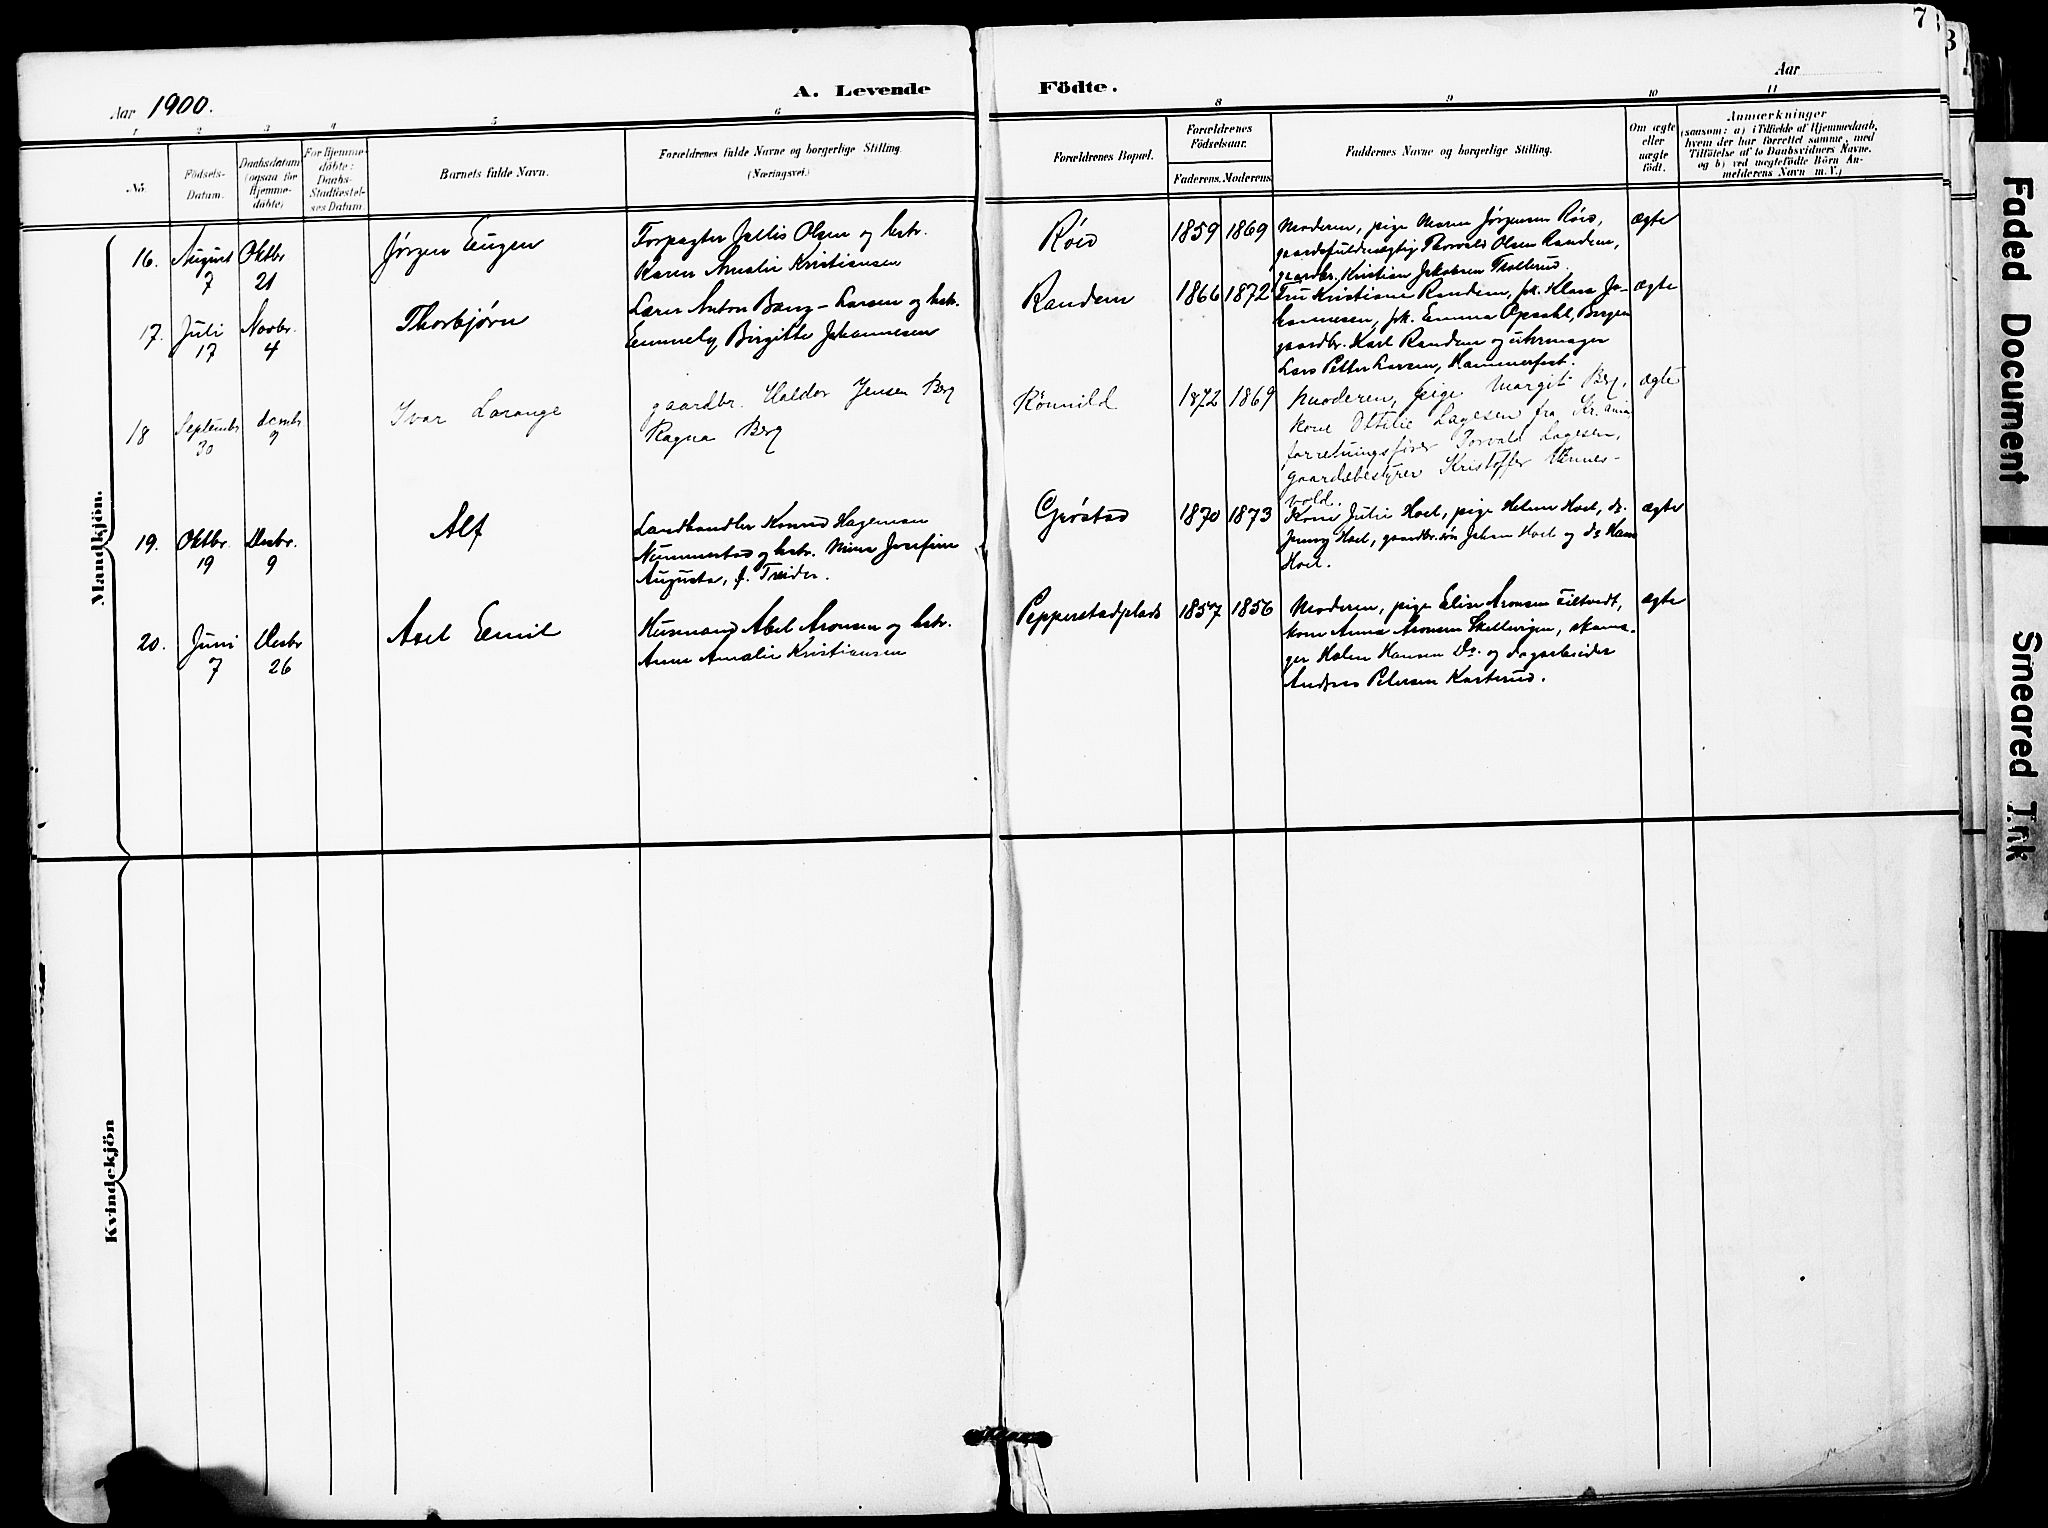 7
3
Aar 1900.
A. Levende
Födte.
Aar
1 2 3 4 5 6 8 9 10 11
No.
Födsels-
Datum.
Daabsdatum
(ogsaa for
Hjemme-
döbte)
For Hjemme-
döbte:
Daabs-
Stadfæstel-
ses Datum.
Barnets fulde Navn.
Forældrenes fulde Navne og borgerlige Stilling.
(Næringsvei.)
Forældrenes Bopæl.
Forældrenes
Födselsaar.
Faderens. Moderens
Faddernes Navne og borgerlige Stilling.
Om ægte
eller
uægte
födt.
Anmærkninger
(saasom: a) i Tilfælde af Hjemmedaab,
hvem der har forrettet samme, med
Tilföielse af to Daabsvidners Navne.
og b) ved uægtefödte Börn An-
melderens Navn m. V.)
Mandkjön.
16.
August
7
Oktbr
21
Jørgen Eugen
Forpagter Jellis Olsen og hstr.
Karen Amalie Kristiansen
Röis
1859 1869
Moderen, pige Maren Jørgensen Röis,
gaardsfuldmægtig Thorvald Olsen Randem,
gaardbr. Kristian Jakobsen Trollerud.
ægte
17.
Juli
17
Novbr.
4
Thorbjørn
Lærer Anton Bang-Larsen og hstr.
Emmely Birgitte Johannesen
Randem
1866 1872
Fru Kristiane Randem, frk. Klara Jo-
hannesen, frk. Emma Opsahl, Bergen
gaardbr. Karl Randem og uhrmager
Lars Petter Larsen, Hammerfest.
ægte
18
Septembr
30
decmbr
9
Ivar Lorange
gaardbr. Haldor Jensen Berg
Ragna Berg
Römnild
1872 1869
Moderen, pige Margit Berg,
kone Ottilie Lagesen fra Kr.ania
forretningsfører Torvald Lagesen,
gaardsbestyrer Kristoffer Vinnes-
vold.
ægte
19.
Oktbr.
19
Desbr.
9
Alf
Landhandler Konrad Hageman
Nummestad og hstr. Mina Josefine
Augusta, f. Treider.
Gröstad
1870 1873
Kone Julie Hoel, pige Helene Hoel, do.
Jenny Hoel, gaardbr.søn Johan Hoel og do Hans
Hoel.
ægte
20.
Juni
7
Desbr
26
Axel Emil
Husmand Abel Aronsen og hstr.
Anne Amalie Kristiansen
Pepperstadplads
1857 1856
Moderen, pige Elise Aronsen Tiltvedt,
kone Anna Aronsen Skellvigen, skoma-
ger Halen Hansen Do. og dagarbeider
Andreas Petersen Kasterud.
ægte
Kvindekjön
Faded Document
Smeared Ink